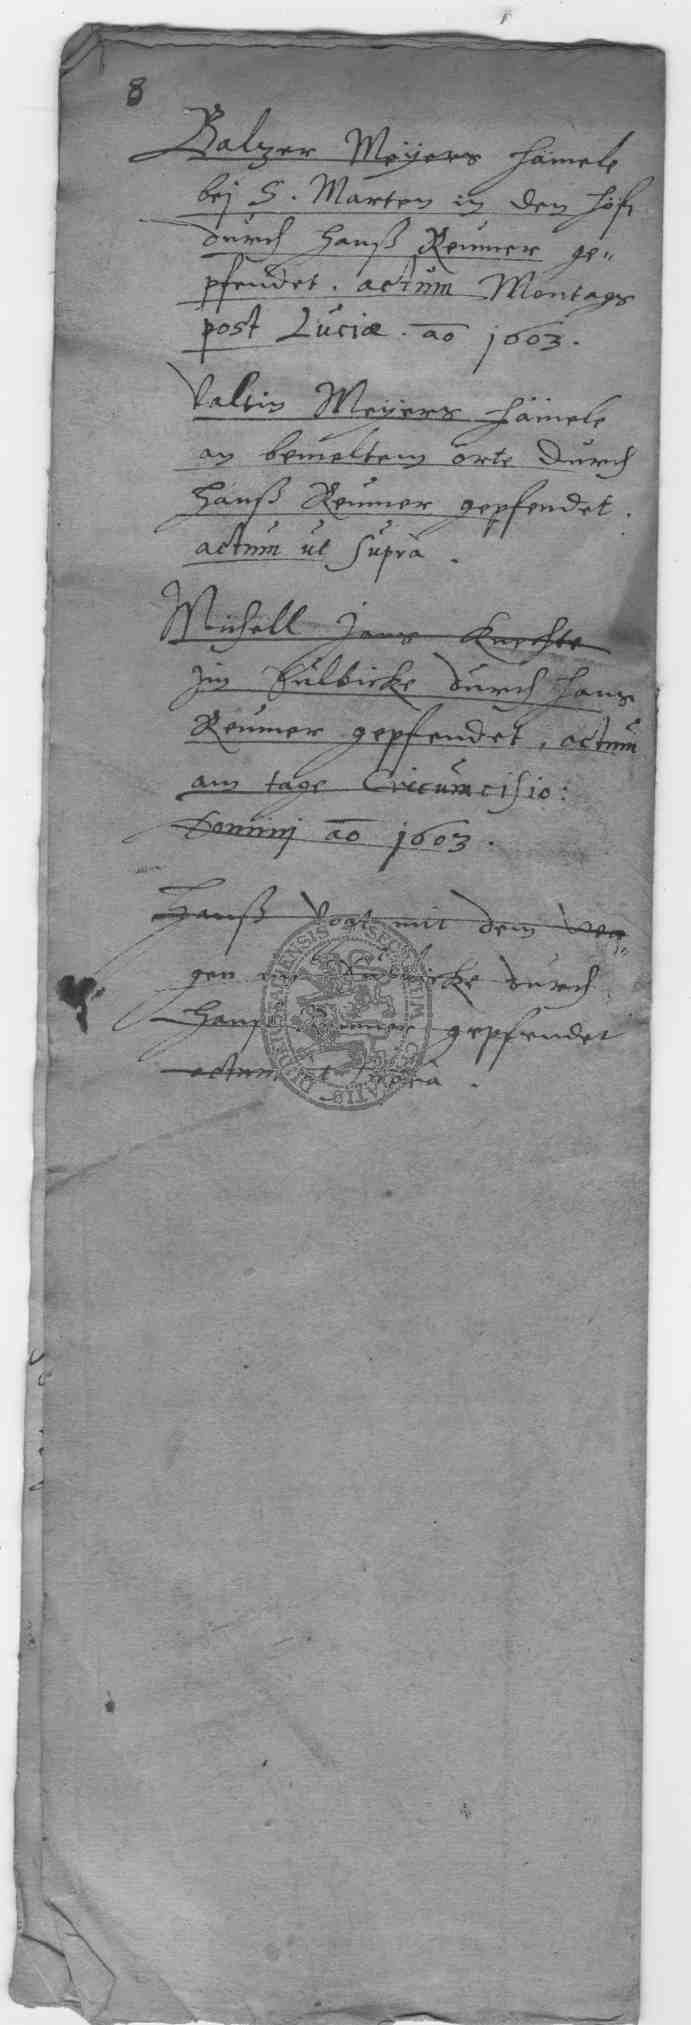 8
Balzer Meÿers Hämele
bej S. Marten in den Höfi
durch Hanß Reumer ge„
pfendet. actum Montags
post Luciæ. ao 1603.
Valtin Meÿers Hämele
an bemeltem orte durch
Hanß Reumer gepfendet.
actum ut supra.
Michell Jans Knechte
im durch Hans
Reumer gepfendet, actum
am tage Circumcisio:
Domini ao 1603.
Hanß Vogt mit dem Wa„
gen durch
Hanß Reumer gepfendet
actum ut supra.